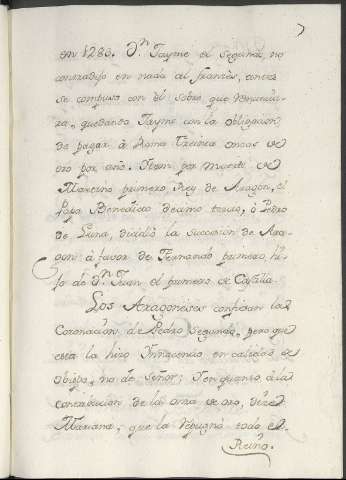 en 1283. Dn. Jayme el Segundo no
contradijo en nada al francès, antes
se compuso con él sobre que renuncia-
ra, quedando Jayme con la obligacion
de pagar à Roma treinta onzas de
oro por año. Item por muerte de
Martino primero, Rey de Aragon, el
Papa Benedicto decimo tercio, ò Pedro
de Luna, decidiò la succesion de Ara-
gon à favor de Fernando primero, hi-
jo de Dn. Juan el primero de Castilla.
Los Aragoneses confiesan la
Coronacion de Pedro Segundo, pero que
esta la hizo Innocencio en calidad de
Obispo, no de Señor; Y en quanto à la
contribucion de la onza de oro, dize
Mariana, que la repugnò todo el
Reino.